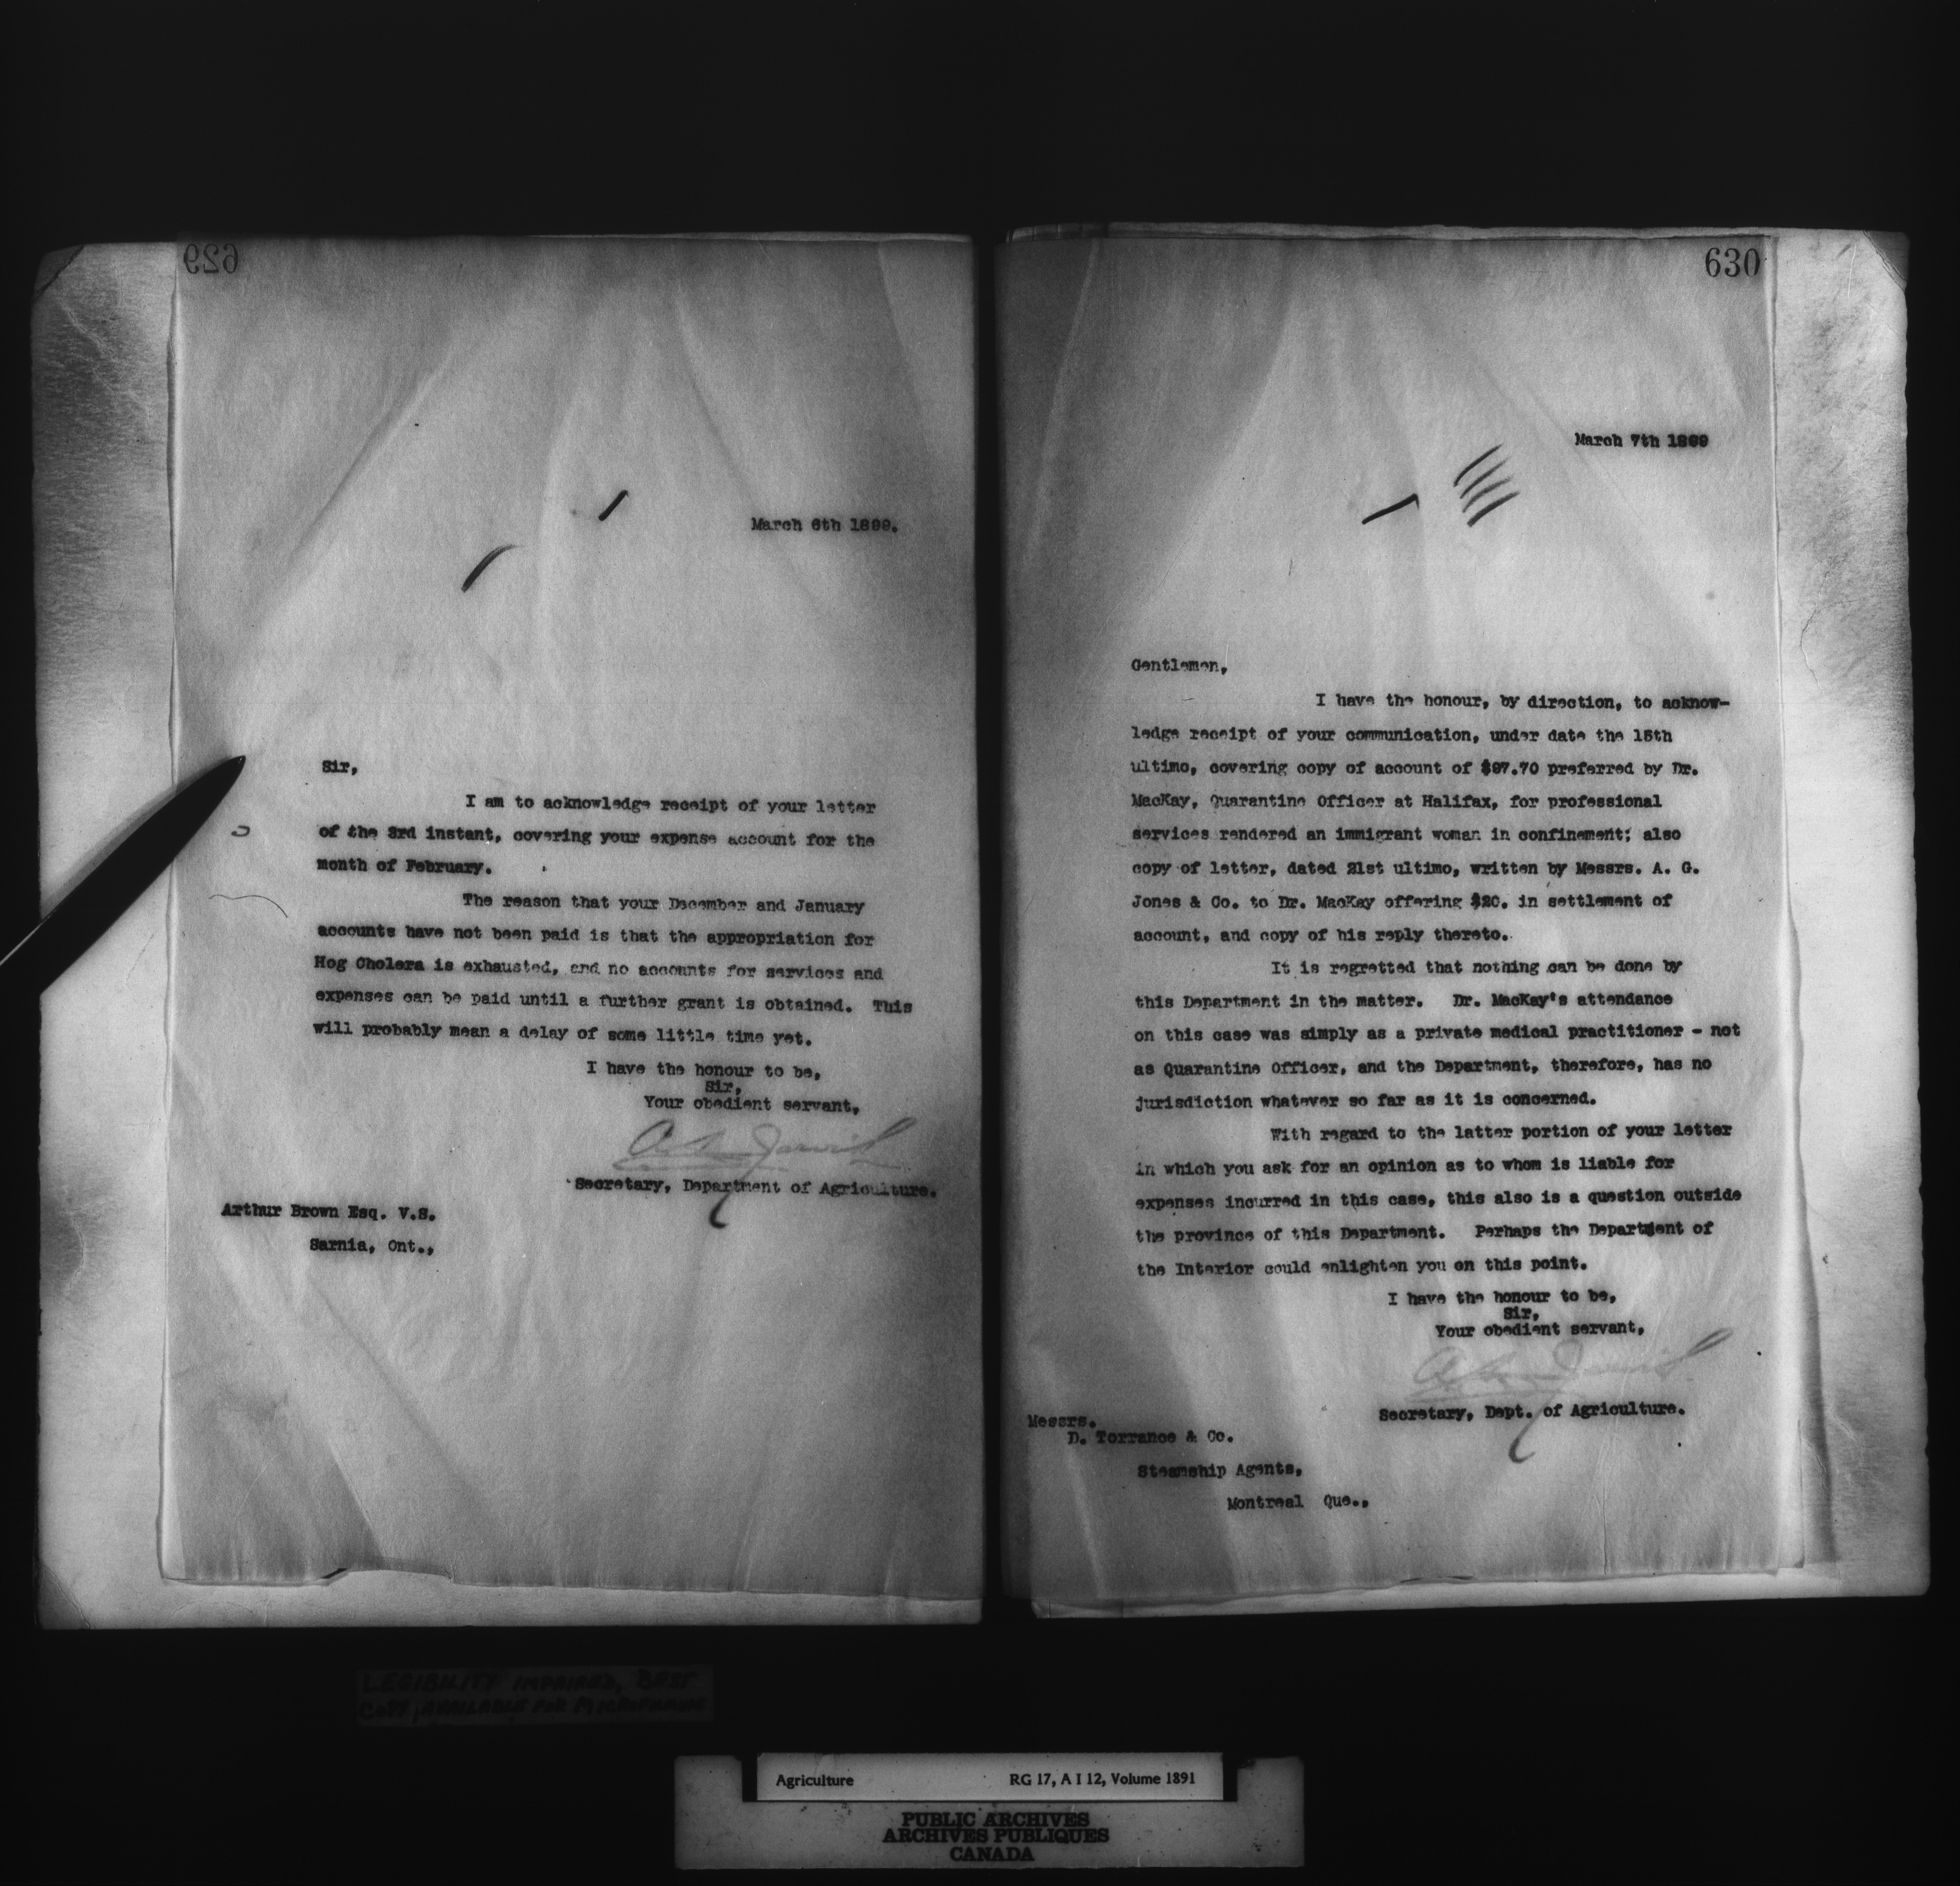 629
March 6th 1899.
Sir,
I am to acknowledge receipt of your letter
of the 3rd instant, covering your expense account for the
month of February.
The reason that your December and January
accounts have not been paid is that the appropriation for
Hog Cholera is exhausted, and no accounts for services and
expenses can be paid until a further grant is obtained. This
will probably mean a delay of some little time yet.
I have the honour to be,
Sir,
Your obedient servant,
Secretary, Department of Agriculture.
Arthur Brown Esq. V.S.
Sarnia, Ont.,
630
March 7th 1899
Gentlemen,
I have the honour, by direction, to acknow-
ledge receipt of your communication, under date the 15th
ultimo, covering copy of account of $97.70 preferred by Dr.
MacKay, Quarantine Officer at Halifax, for professional
services rendered an immigrant woman in confinement; also
copy of letter, dated 21st ultimo, written by Messrs. A. G.
Jones & Co. to Dr. MacKay offering $20. in settlement of
account, and copy of his reply thereto.
It is regretted that nothing can be done by
this Department in the matter. Dr. MacKay's attendance
on this case was simply as a private medical practitioner - not
as Quarantine Officer, and the Department, therefore, has no
jurisdiction whatever so far as it is concerned.
With regard to the latter portion of your letter
in which you ask for an opinion as to whom is liable for
expenses incurred in this case, this also is a question outside
the province of this Department. Perhaps the Department of
the Interior could enlighten you on this point.
I have the honour to be,
Sir,
Your obedient servant,
Secretary, Dept. of Agriculture.
Messrs.
D. Torrance & Co.
Steamship Agents,
Montreal Que.,
LEGIBILITY IMPAIRED, BEST
COPY AVAILABLE FOR MICROFILMING
Agriculture RG 17, A I 12, Volume 1891
PUBLIC ARCHIVES
ARCHIVES PUBLIQUES
CANADA